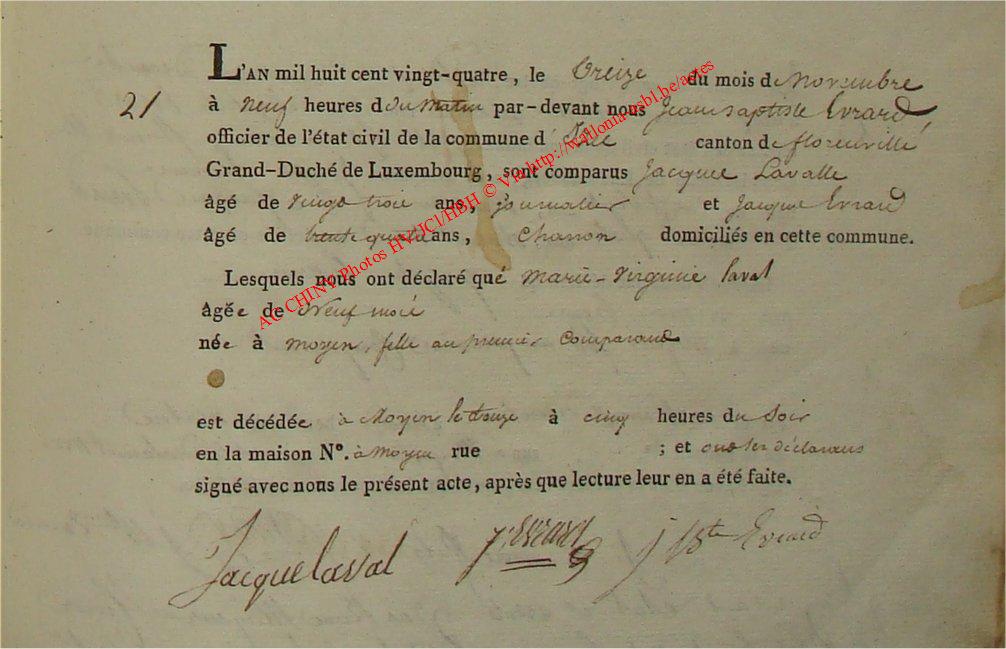 L'AN mil huit cent vingt-quatre, le treize du mois de Novembre
21
à Neuf heures d du Matin par-devant nous Jean Baptiste Evrard
officier de l'état civil de la commune d' canton de florenville
Grand-Duché de Luxembourg, sont comparus Jacques Lavalle
âgé de vingt trois ans, journalier et Jacque Evrard
âgé de trente quatre ans, Charron domiciliés en cette commune.
Lesquels nous ont déclaré que Marie-Virginie laval
âgée de Neuf mois
née à moyen, fille au premier Comparant
est décédée à Moyen le douze à cinq heures du Soir
en la maison N°. à Moyen rue ; et ont les déclarans
signé avec nous le présent acte, après que lecture leur en a été faite.
Jacque laval J. Evrard J Bte Evrard
AC CHINY Photos HYJC1/HBH © Via http://wallonia.asbl.be/actes